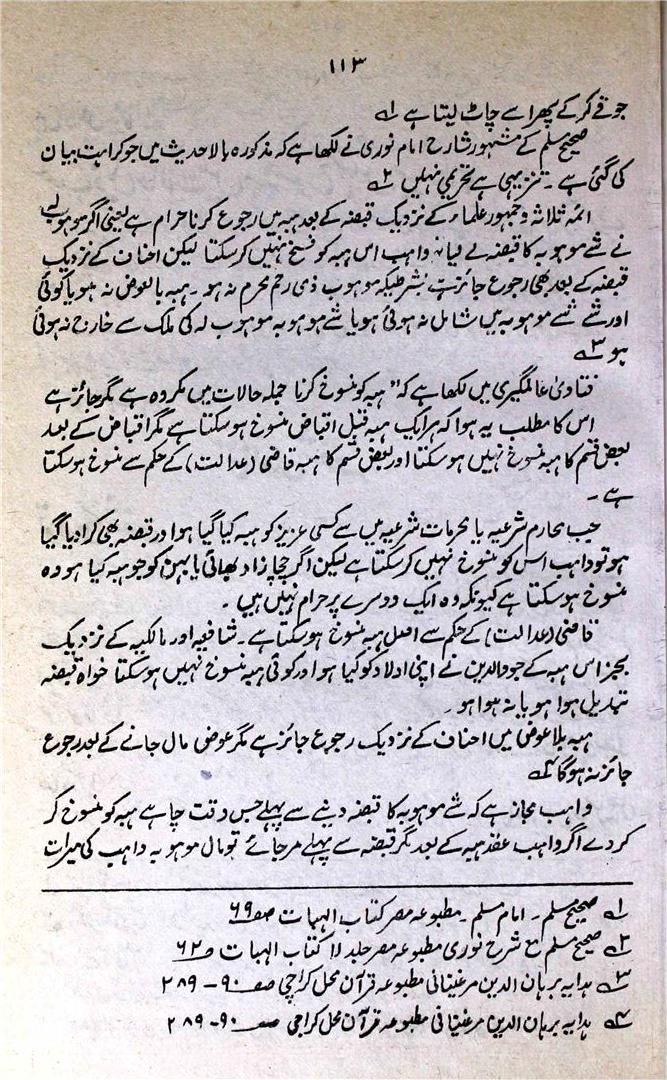 ۱۱۳
جو قے کر کے پھر اسے چاٹ لیتا ہے ؎۱
صحیح مسلم کے مشہور شارح امام نوری نے لکھا ہے کہ مذکورہ بالا حدیث میں جو کراہت بیان
کی گئی ہے ۔ تنزیہی ہے تحریمی نہیں ؎۲
ائمہ ثلاثہ و جمہور علماء کے نزدیک قبضہ کے بعد ہبہ میں رجوع کرنا حرام ہے یعنی اگر موہوب لہ
نے شے موہوبہ کا قبضہ لے لیا تو واہب اس ہبہ کو فسخ نہیں کر سکتا لیکن احناف کے نزدیک
قبضہ کے بعد بھی رجوع جائز ہے بشرطیکہ موہوب ذی رحم محرم نہ ہو ۔ ہبہ بالعوض نہ ہو یا کوئی
اور شے شے موہوبہ میں شامل نہ ہوئی ہو یا شے موہوبہ موہوب لہ کی ملک سے خارج نہ ہوئی
ہو ؎۳
فتاویٰ عالمگیری میں لکھا ہے کہ " ہبہ کو منسوخ کرنا جملہ حالات میں مکروہ ہے مگر جائز ہے
اس کا مطلب یہ ہوا کہ ہر ایک ہبہ قبل اقباض منسوخ ہو سکتا ہے مگر اقباض کے بعد
بعض قسم کا ہبہ منسوخ نہیں ہو سکتا اور بعض قسم کا ہبہ قاضی (عدالت) کے حکم سے منسوخ ہو سکتا
ہے ۔
جب محارم شرعیہ یا محرمات شرعیہ میں سے کسی عزیز کو ہبہ کیا گیا ہو اور قبضہ بھی کرا دیا گیا
ہو تو واہب اس کو منسوخ نہیں کر سکتا ہے لیکن اگر چچا زاد بھائی یا بہن کو جو ہبہ کیا ہو وہ
منسوخ ہو سکتا ہے کیونکہ وہ ایک دوسرے پر حرام نہیں ہیں ۔
قاضی (عدالت) کے حکم سے اصل ہبہ منسوخ ہو سکتا ہے ۔ شافعیہ اور مالکیہ کے نزدیک
بجز اس ہبہ کے جو والدین نے اپنی اولاد کو کیا ہو اور کوئی ہبہ منسوخ نہیں ہو سکتا خواہ قبضہ
تبدیل ہوا ہو یا نہ ہوا ہو ۔
ہبہ بلا عوض میں احناف کے نزدیک رجوع جائز ہے مگر عوض مال جانے کے بعد رجوع
جائز نہ ہو گا ؎۴
واہب مجاز ہے کہ شے موہوبہ کا قبضہ دینے سے پہلے جس وقت چاہے ہبہ کو منسوخ کر
کر دے اگر واہب عقد ہبہ کے بعد مگر قبضہ سے پہلے مر جائے تو مال موہوبہ واہب کی میراث
؎۱ صحیح مسلم ۔ امام مسلم ۔ مطبوعہ مصر کتاب الہبات صفحہ ۶۹
؎۲ صحیح مسلم مع شرح نوری مطبوعہ مصر جلد ۱۱ کتاب الہبات صفحہ ۶۲
؎۳ ہدایہ برہان الدین مرغینانی مطبوعہ قرآن محل کراچی صفحہ ۹۰ - ۲۸۹
؎۴ ہدایہ برہان الدین مرغینانی مطبوعہ قرآن محل کراچی صفحہ ۹۰ - ۲۸۹